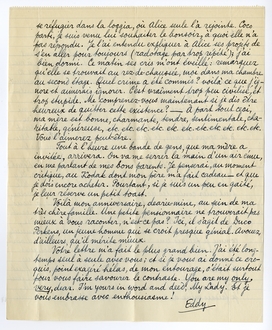 se réfugier dans la loggia, où Alice seule l'a rejointe. Ceci
part, je suis venu lui souhaiter le bonsoir, à quoi elle n'a
pas répondu. Je l'ai entendue expliquer à Alice ses projets de
s'en aller pour toujours
bien dormi. Ce matin ses cris m'ont éveillé: remarquez
qu'elle se trouvait au rez-de-chaussée, moi dans ma chambre
au second étage. Quel crime a été commis? voilà ce que j'i-
gnore et aimerais ignorer. C'est vraiment trop peu civilisé, et
trop stupide. Me comprenez-vous maintenant si je dis être
heureux de quitter cette existence? — À part tout cela
ma mère est bonne, charmante, tendre, sentimentale, cha-
ritable, généreuse, etc. etc. etc. etc. etc. etc. etc. etc. etc.
Vous l'aimerez peut-être.
Tout à l'heure une bande de gens, que ma mère a
invités, arrivera. On va me serrer la main d'un air ému,
en me parlant de mes bons parents. Je penserai, au moment
critique, au Kodak dont mon père m'a fait cadeau — et que
je dois encore acheter. Pourtant, si je suis un peu en gaieté,
je leur ferai un petit toast.
Voilà mon anniversaire, dear, au sein de ma
très chère famille. Une petite pensionnaire ne trouverait pas
mieux à vous raconter, n'est-ce pas? Ici, il s'agit de Duco
Perkens, un jeune homme qui se croit presque génial. Avouez
d'ailleurs, qu'il mérite mieux.
Votre lettre m'a fait le plus grand bien. J'ai été long-
temps seul à seule avec vous; et si je vous ai donné ce cro-
quis, peu exagéré hélas, de mon entourage, c'était surtout
pour vous faire savourer le contraste. You are my only,
very, dear. I'm yours in word and deed, My Lady. Et je
vous embrasse avec enthousiasme!
Eddy